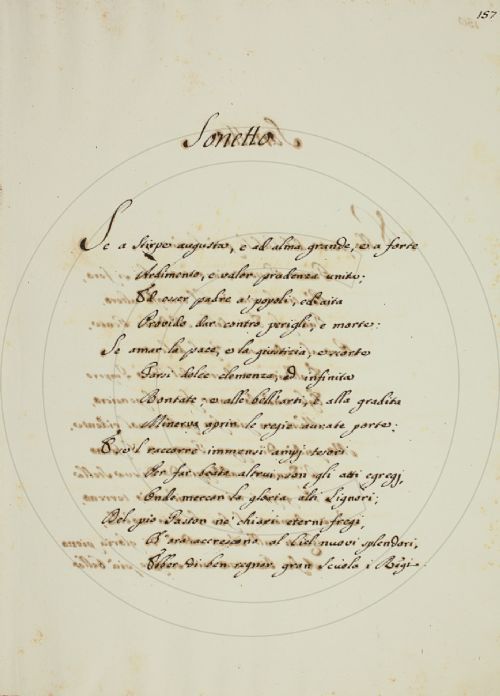 157
Sonetto
Se a Stirpe augusta, e ad alma grande, e a forte
Ardimento, e valor prudenza unita;
Ed esser padre a' popoli, ed aita
Provido dar contro perigli, e morte:
Se amar la pace, e la giustizia, e scorte
Farsi dolce clemenza, ed infinita
Bontate; e alle bell'arti, e alla gradita
Minerva aprir le regie aurate porte;
E se'l raccorre immensi ampj tesori
Per far beata altrui, son gli atti egregj,
Onde mercan la gloria alti Signori;
Del pio Pastor ne' chiari eterni fregi,
Ch' ora accrescono al Ciel nuovi splendori,
di ben regnar gran Scuola i Regi.